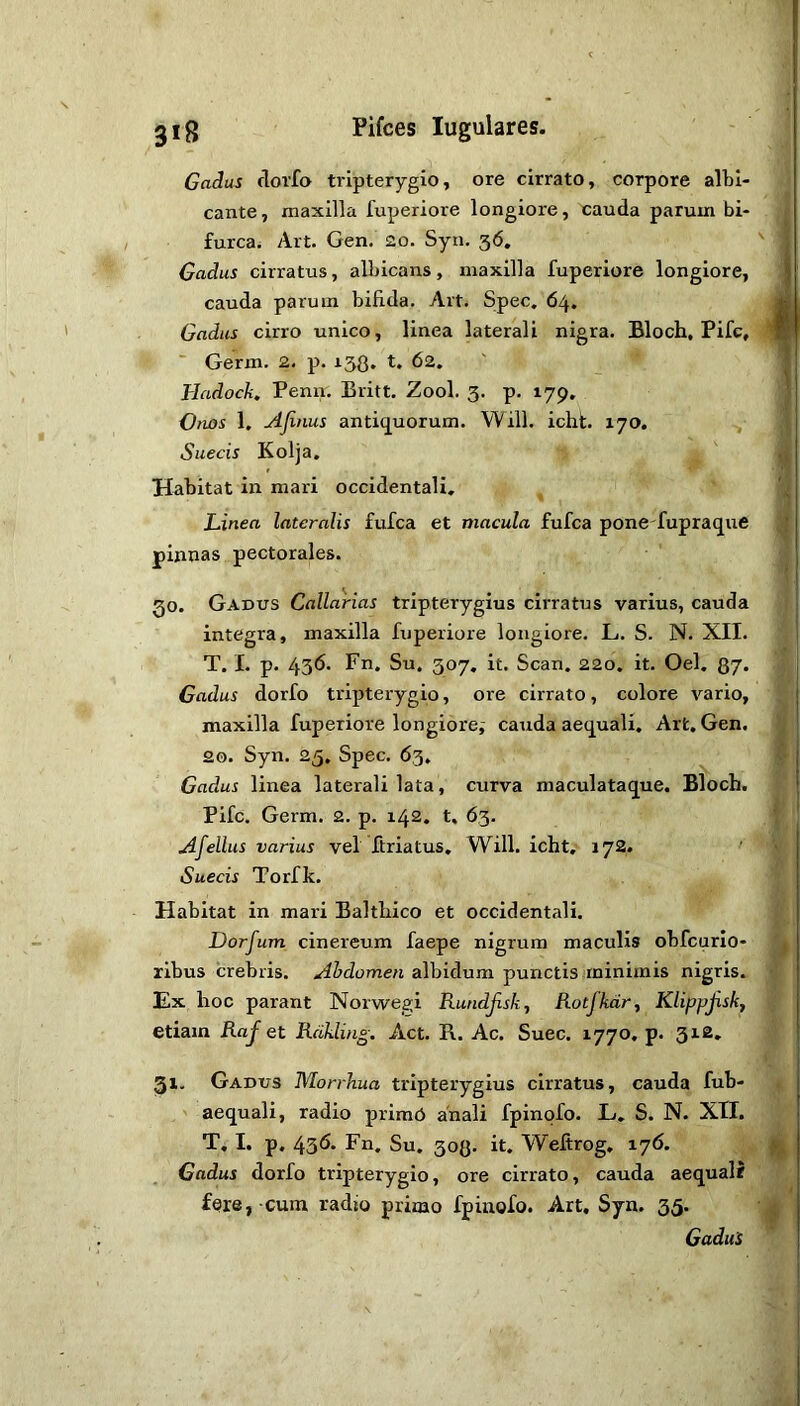 318 Piſces Iugulares.
Gadus dorſo tripterygio, ore cirrato, corpore albi-
cante, maxilla ſuperiore longiore, cauda parum bi-
furca. Art. Gen. 20. Syn. 36.
Gadus cirratus, albicans, maxilla ſuperiore longiore,
cauda parum bifida. Art. Spec. 64.
Gadus cirro unico, linea laterali nigra. Bloch. Piſc.
Germ. 2. p. 138. t. 62.
Hadock. Penn. Britt. Zool. 3. p. 179.
Onos 1. Aſinus antiquorum. Will. icht. 170.
Suecis Kolja.
Habitat in mari occidentali.
Linea lateralis fuſca et macula fuſca pone ſupraque
pinnas pectorales.
30. Gadus Callarias tripterygius cirratus varius, cauda
integra, maxilla ſuperiore longiore. L. S. N. XII.
T. I. p. 436. Fn. Su. 307. it. Scan. 220. it. Oel. 87.
Gadus dorſo tripterygio, ore cirrato, colore vario,
maxilla ſuperiore longiore, cauda aequali. Art. Gen.
20. Syn. 25. Spec. 63.
Gadus linea laterali lata, curva maculataque. Bloch.
Piſc. Germ. 2. p. 142. t. 63.
Aſellus varius vel ſtriatus. Will. icht. 172.
Suecis Torſk.
Habitat in mari Balthico et occidentali.
Dorſum cinereum ſaepe nigrum maculis obſcurio-
ribus crebris. Abdomen albidum punctis minimis nigris.
Ex hoc parant Norwegi Rundfisk, Rotſkär, Klippfisk,
etiam Raf et Räkling. Act. R. Ac. Suec. 1770. p. 312.
31. Gadus Morrhua tripterygius cirratus, cauda ſub-
aequali, radio primó anali ſpinoſo. L. S. N. XII.
T. I. p. 436. Fn. Su. 308. it. Weſtrog. 176.
Gadus dorſo tripterygio, ore cirrato, cauda aequali
fere, cum radio primo ſpinoſo. Art. Syn. 35.
Gadus